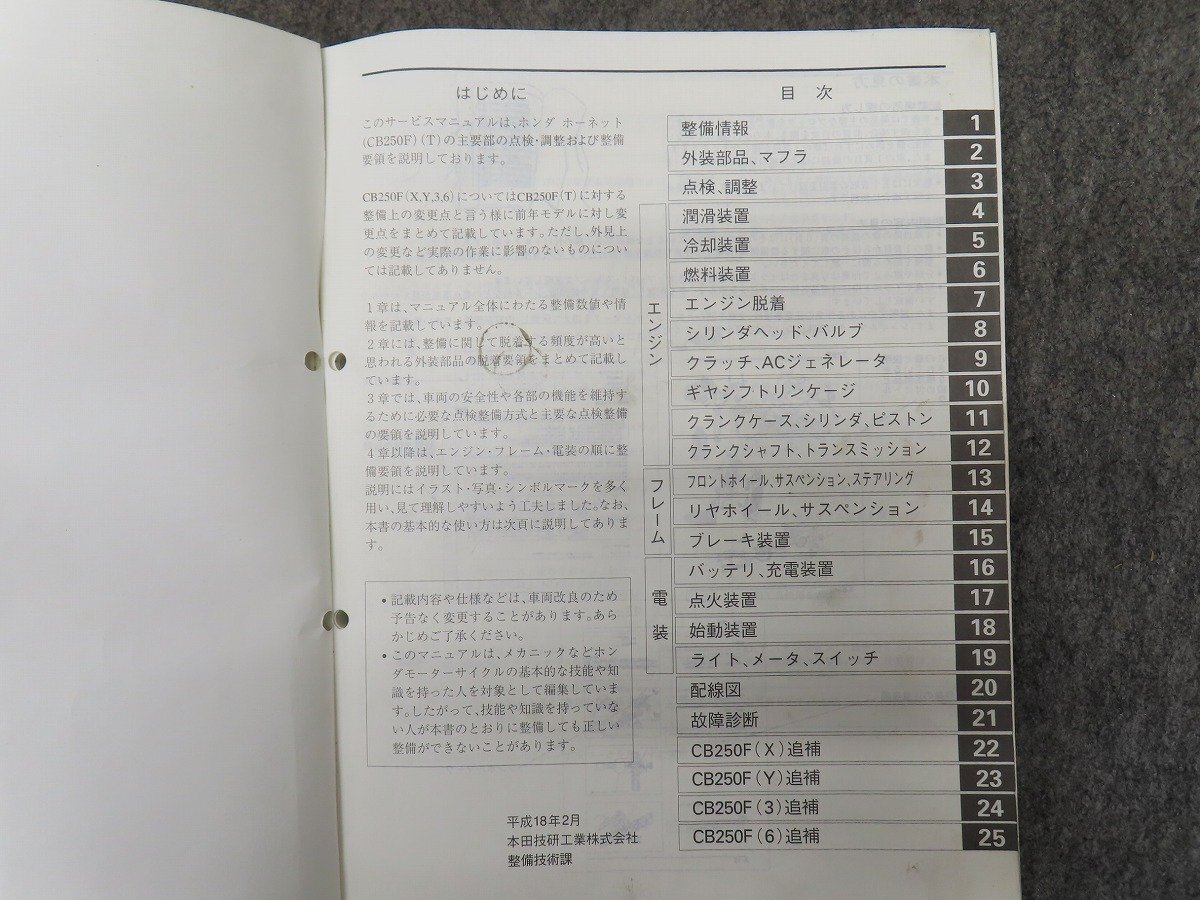 はじめに
このサービスマニュアルは、ホンダ ホーネット
(CB250F)(T)の主要部の点検・調整および整備
要領を説明しております。
CB250F(X,Y,3,6)についてはCB250F(T)に対する
整備上の変更点と言う様に前年モデルに対し変
更点をまとめて記載しています。ただし、外見上
の変更など実際の作業に影響のないものについ
ては記載してありません。
1章は、マニュアル全体にわたる整備数値や情
報を記載しています。
2章には、整備に関して脱着する頻度が高いと
思われる外装部品の脱着要領をまとめて記載し
ています。
3章では、車両の安全性や各部の機能を維持す
るために必要な点検整備方式と主要な点検整備
の要領を説明しています。
4章以降は、エンジン・フレーム・電装の順に整
備要領を説明しています。
説明にはイラスト・写真・シンボルマークを多く
用い、見て理解しやすいよう工夫しました。なお、
本書の基本的な使い方は次頁に説明してありま
す。
• 記載内容や仕様などは、車両改良のため
予告なく変更することがあります。あら
かじめご了承ください。
• このマニュアルは、メカニックなどホン
ダモーターサイクルの基本的な技能や知
識を持った人を対象として編集していま
す。したがって、技能や知識を持っていな
い人が本書のとおりに整備しても正しい
整備ができないことがあります。
平成18年2月
本田技研工業株式会社
整備技術課
目 次
整備情報 1
外装部品、マフラ 2
点検、調整 3
エンジン
潤滑装置 4
冷却装置 5
燃料装置 6
エンジン脱着 7
シリンダヘッド、バルブ 8
クラッチ、ACジェネレータ 9
ギヤシフトリンケージ 10
クランクケース、シリンダ、ピストン 11
クランクシャフト、トランスミッション 12
フレーム
フロントホイール、サスペンション、ステアリング 13
リヤホイール、サスペンション 14
ブレーキ装置 15
電装
バッテリ、充電装置 16
点火装置 17
始動装置 18
ライト、メータ、スイッチ 19
配線図 20
故障診断 21
CB250F(X)追補 22
CB250F(Y)追補 23
CB250F(3)追補 24
CB250F(6)追補 25